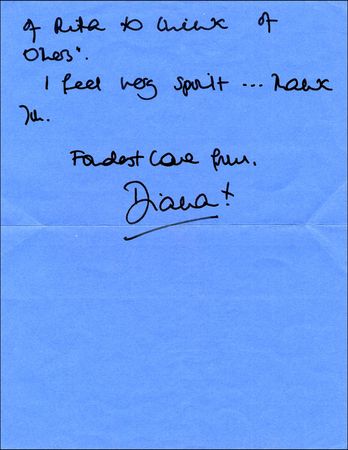 of Rita to think of
others".
I feel very spoilt ... thank
you.
Fondest love from,
Diana x